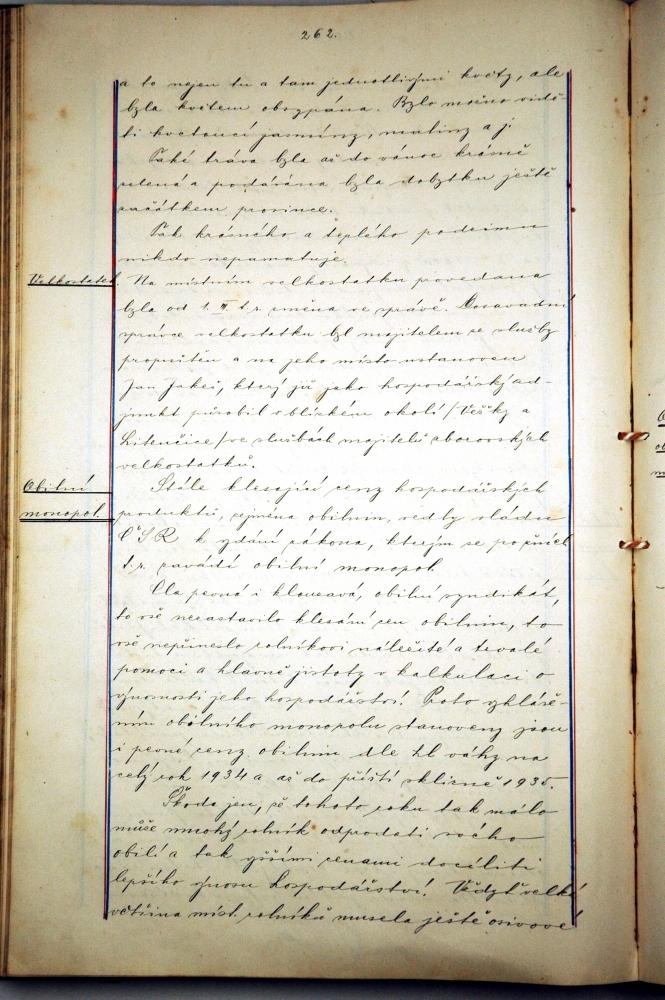 262.
a to nejen tu a tam jednotlivými květy, ale
byla květem obsypána. Bylo možno vidě-
ti kvetoucí jasmíny, maliny a j.
Také tráva byla až do vánoc krásně
zelená a podávána byla dobytku ještě
začátkem prosince.
Tak krásného a teplého podzimu
nikdo nepamatuje.
Velkostatek. Na místním velkostatku provedena
byla od 1. t. r. změna ve správě. Dosavadní
správce velkostatku byl majitelem ze služby
propuštěn a na jeho místo ustanoven
Jan Jakeš, který již jako hospodářský ad-
junkt působil v blízkém okolí /Věžky a
Litenčice/ ve službách majitelů zborovských
velkostatků.
Obilní Stále klesající ceny hospodářských
monopol. produktů, zejména obilnin, vedly vládu
ČSR k vydání zákona, kterým se po žních
t. r. zavádí obilní monopol.
Cla pevná i klouzavá, obilní syndikát,
to vše nezastavilo klesání cen obilnin, to
vše nepřineslo rolníkovi náležité a trvalé
pomoci a hlavně jistoty v kalkulaci o
výnosnosti jeho hospodářství! Proto vyhláše-
ním obilního monopolu stanoveny jsou
i pevné ceny obilnin dle hl váhy na
celý rok 1934 a až do příští sklizně 1935.
Škoda jen, že tohoto roku tak málo
může mnohý rolník odprodati svého
obilí a tak vyššími cenami docíliti
lepšího výnosu hospodářství! Vždyť velká
většina míst. rolníků musela ještě osivové